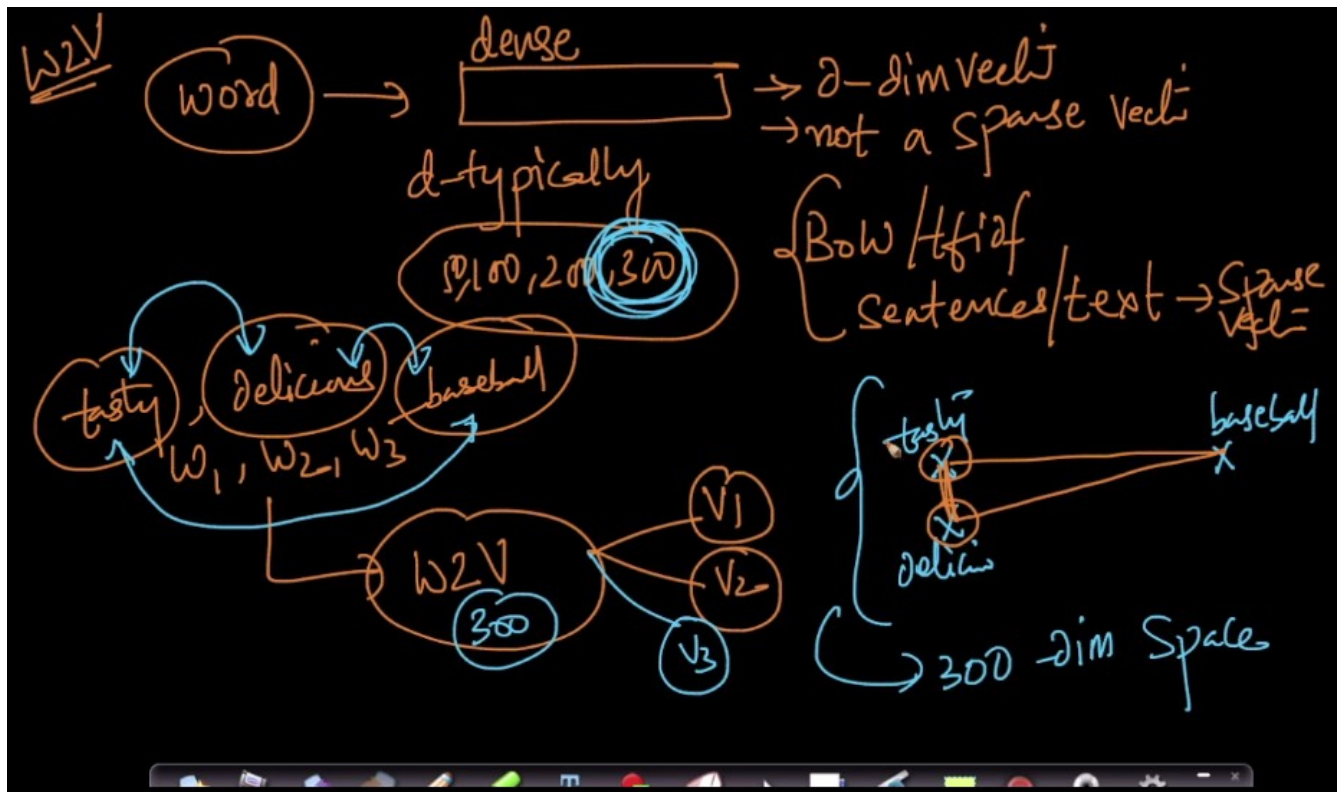 W2V
word
dense
→ d-dim vect
→ not a sparse vect
d-typically
50,100,200,300
BOW/tfidf
sentences/text → sparse vect
tasty, delicious, baseball
W1, W2, W3
W2V
300
V1
V2
V3
tasty
baseball
delicio
300-dim space